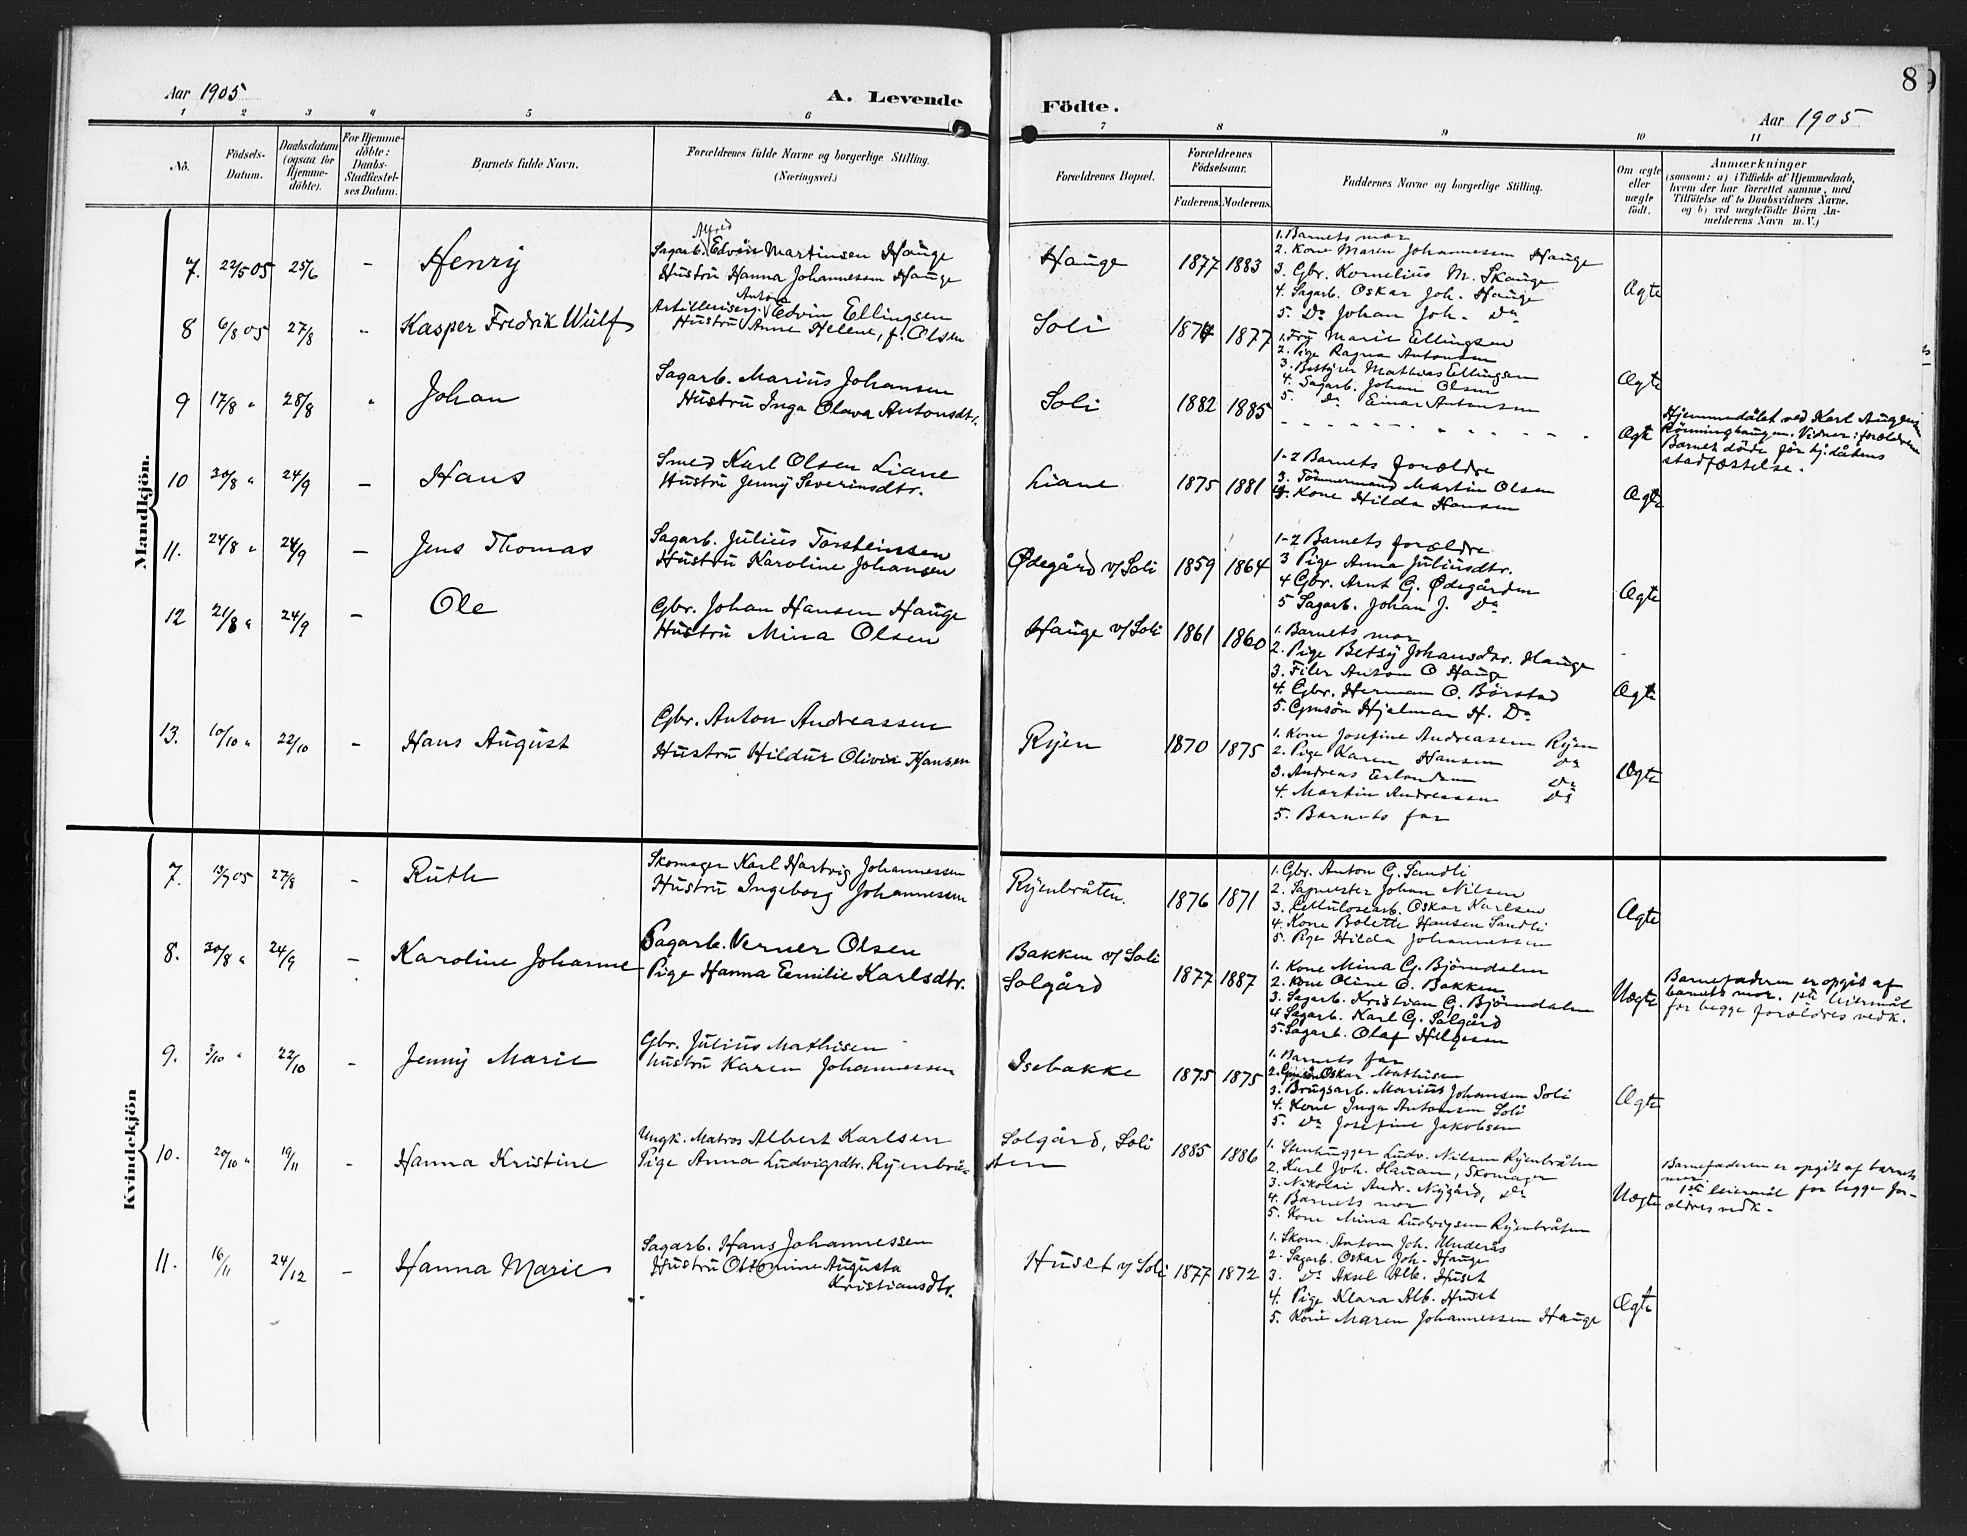 Aar 1905
A. Levende
Födte.
Aar 1905
8
1 2 3 4 5 6 7 8 9 10 11
No.
Födsels-Datum.
Daabsdatum (ogsaa for Hjemme-döbte).
For Hjemme-döbte: Daabs-Stadfæstel-ses Datum.
Barnets fulde Navn.
Forældrenes fulde Navne og borgerlige Stilling. (Næringsvei.)
Forældrenes Bopæl.
Forældrenes Födselsaar.
Faderens. Moderens.
Faddernes Navne og borgerlige Stilling.
Om ægte eller uægte födt.
Anmærkninger
(saasom: a) i Tilfælde af Hjemmedaab, hvem der har forrettet samme, med Tilföielse af to Daabsvidners Navne. og b) ved uægtefödte Börn An-melderens Navn m. V.)
Mandkjön.
7. 22/5 05 25/6 - Henrÿ
Sagarb. Alfred Edvin Martinsen Hauge
Hustru Hanna Johannessen Hauge
Hauge 1877 1883
1. Barnets mor
2. Kone Maren Johannessen Hauge
3. Gbr. Kornelius M. Skauge
4. Sagarb. Oskar Joh. Hauge
5. Do Johan Joh. Do
Ægte
8 6/8 05 27/8 - Kasper Fredrik Wulf
Artilleriserg. Anton Edvin Ellingsen
Hustru Anne Helene, f. Olsen
Soli 1874 1877
1. Fru Marie Ellingsen
2. Pige Ragna Antonsen
3. Bestyrer Mathias Ellingsen
4. Sagarb. Johan Olsen
5. Do Einar Antonsen
Ægte
9 17/8 " 28/8 " Johan
Sagarb. Marius Johansen
Hustru Inga Olava Antonsdtr.
Soli 1882 1885
- - - - - - - - - -
Ægte
Hjemmedöbt ved Karl August
Rönninghaugen. Vidner: forældrene
Barnet döde för hj.dåbens
stadfæstelse.
10 30/8 " 24/9 - Hans
Smed Karl Olsen Liane
Hustru Jenny Severinsdtr.
Liane 1875 1881
1-2 Barnets forældre
3. Tömmermand Martin Olsen
4. Kone Hilda Hansen
Ægte
11. 24/8 " 24/9 - Jens Thomas
Sagarb. Julius Torsteinsen
Hustru Karoline Johansen
Ødegård v/Soli 1859 1864
1-2 Barnets forældre
3 Pige Anna Juliusdtr.
4 Gbr. Arnt G. Ødegården
5 Sagarb. Johan J. Do
Ægte
12 21/8 " 24/9 - Ole
Gbr. Johan Hansen Hauge
Hustru Mina Olsen
Hauge v/Soli 1861 1860
1. Barnets mor
2. Pige Betsÿ Johansdtr. Hauge
3. Filer Anton O Hauge
4. Gbr. Herman O. Börstad
5. Gmsön Hjelmar H. Do
Ægte
13. 10/10 " 22/10 - Hans August
Gbr. Anton Andreassen
Hustru Hildur Olivia Hansen
Ryen 1870 1875
1. Kone Josefine Andreassen Ryen
2. Pige Karen Hansen Do
3. Andreas Erlandsen Do
4. Martin Andreassen Do
5. Barnets far
Ægte
Kvindekjön
7. 19/7 05 27/8 - Ruth
Skomager Karl Hartvig Johannessen
Hustru Ingeborg Johannessen
Ryenbråten. 1876 1871
1. Gbr. Anton G. Sandli
2. Sagmester Johan Nilsen
3. Cellulosearb. Oskar Karlsen
4. Kone Bolette Hansen Sandli
5. Pige Hilda Johannessen
Ægte
8. 30/8 " 24/9 - Karoline Johanne
Sagarb. Verner Olsen
Pige Hanna Eemilie Karlsdtr.
Bakken v/ Soli
Solgård
1877 1887
1. Kone Mina G. Björndalen
2. Kone Oline O. Bakken
3. Sagarb. Kristian G. Björndalen
4 Sagarb. Karl G. Solgård
5. Sagarb. Olaf Helgesen
Uægte
Barnefaderen er opgit af
barnets mor. 1ste leiermål
for begge forældres vedk.
9. 3/10 " 22/10 - Jenny Marie
Gbr. Julius Mathisen
Hustru Karen Johannessen
Isebakke 1875 1875
1. Barnets far
2. Gmsön Oskar Mathisen
3. Brugsarb. Marius Johansen Soli
4. Kone Inga Antonsen Soli
5. Do Josefine Jakobsen
Ægte
10. 20/10 " 19/11 - Hanna Kristine
Ungk. Matros Albert Karlsen
Pige Anna Ludvigsdtr. Ryenbrå-
Solgård, Soli
ten
1885 1886
1. Stenhugger Ludv. Nilsen Ryenbråten
2. Karl Joh. Hauan, Skomager
3. Nikolai Andr. Nygård, Do
4. Barnets mor
5. Kone Mina Ludvigsen Ryenbråten
Uægte
Barnefaderen er opgit af barnets
mor.
1ste leiermål for begge for-
ældres vedk.
11. 16/11 24/12 - Hanna Marie
Sagarb. Hans Johannessen
Hustru Ottomine Augusta
Kristiansdtr.
Huset v/ Soli 1877 1872
1. Skom. Anton Joh. Underås
2. Sagarb. Oskar Joh. Hauge
3. Do Aksel Alb. Huset
4. Pige Klara Alb. Huset
5. Kone Maren Johannessen Hauge
Ægte